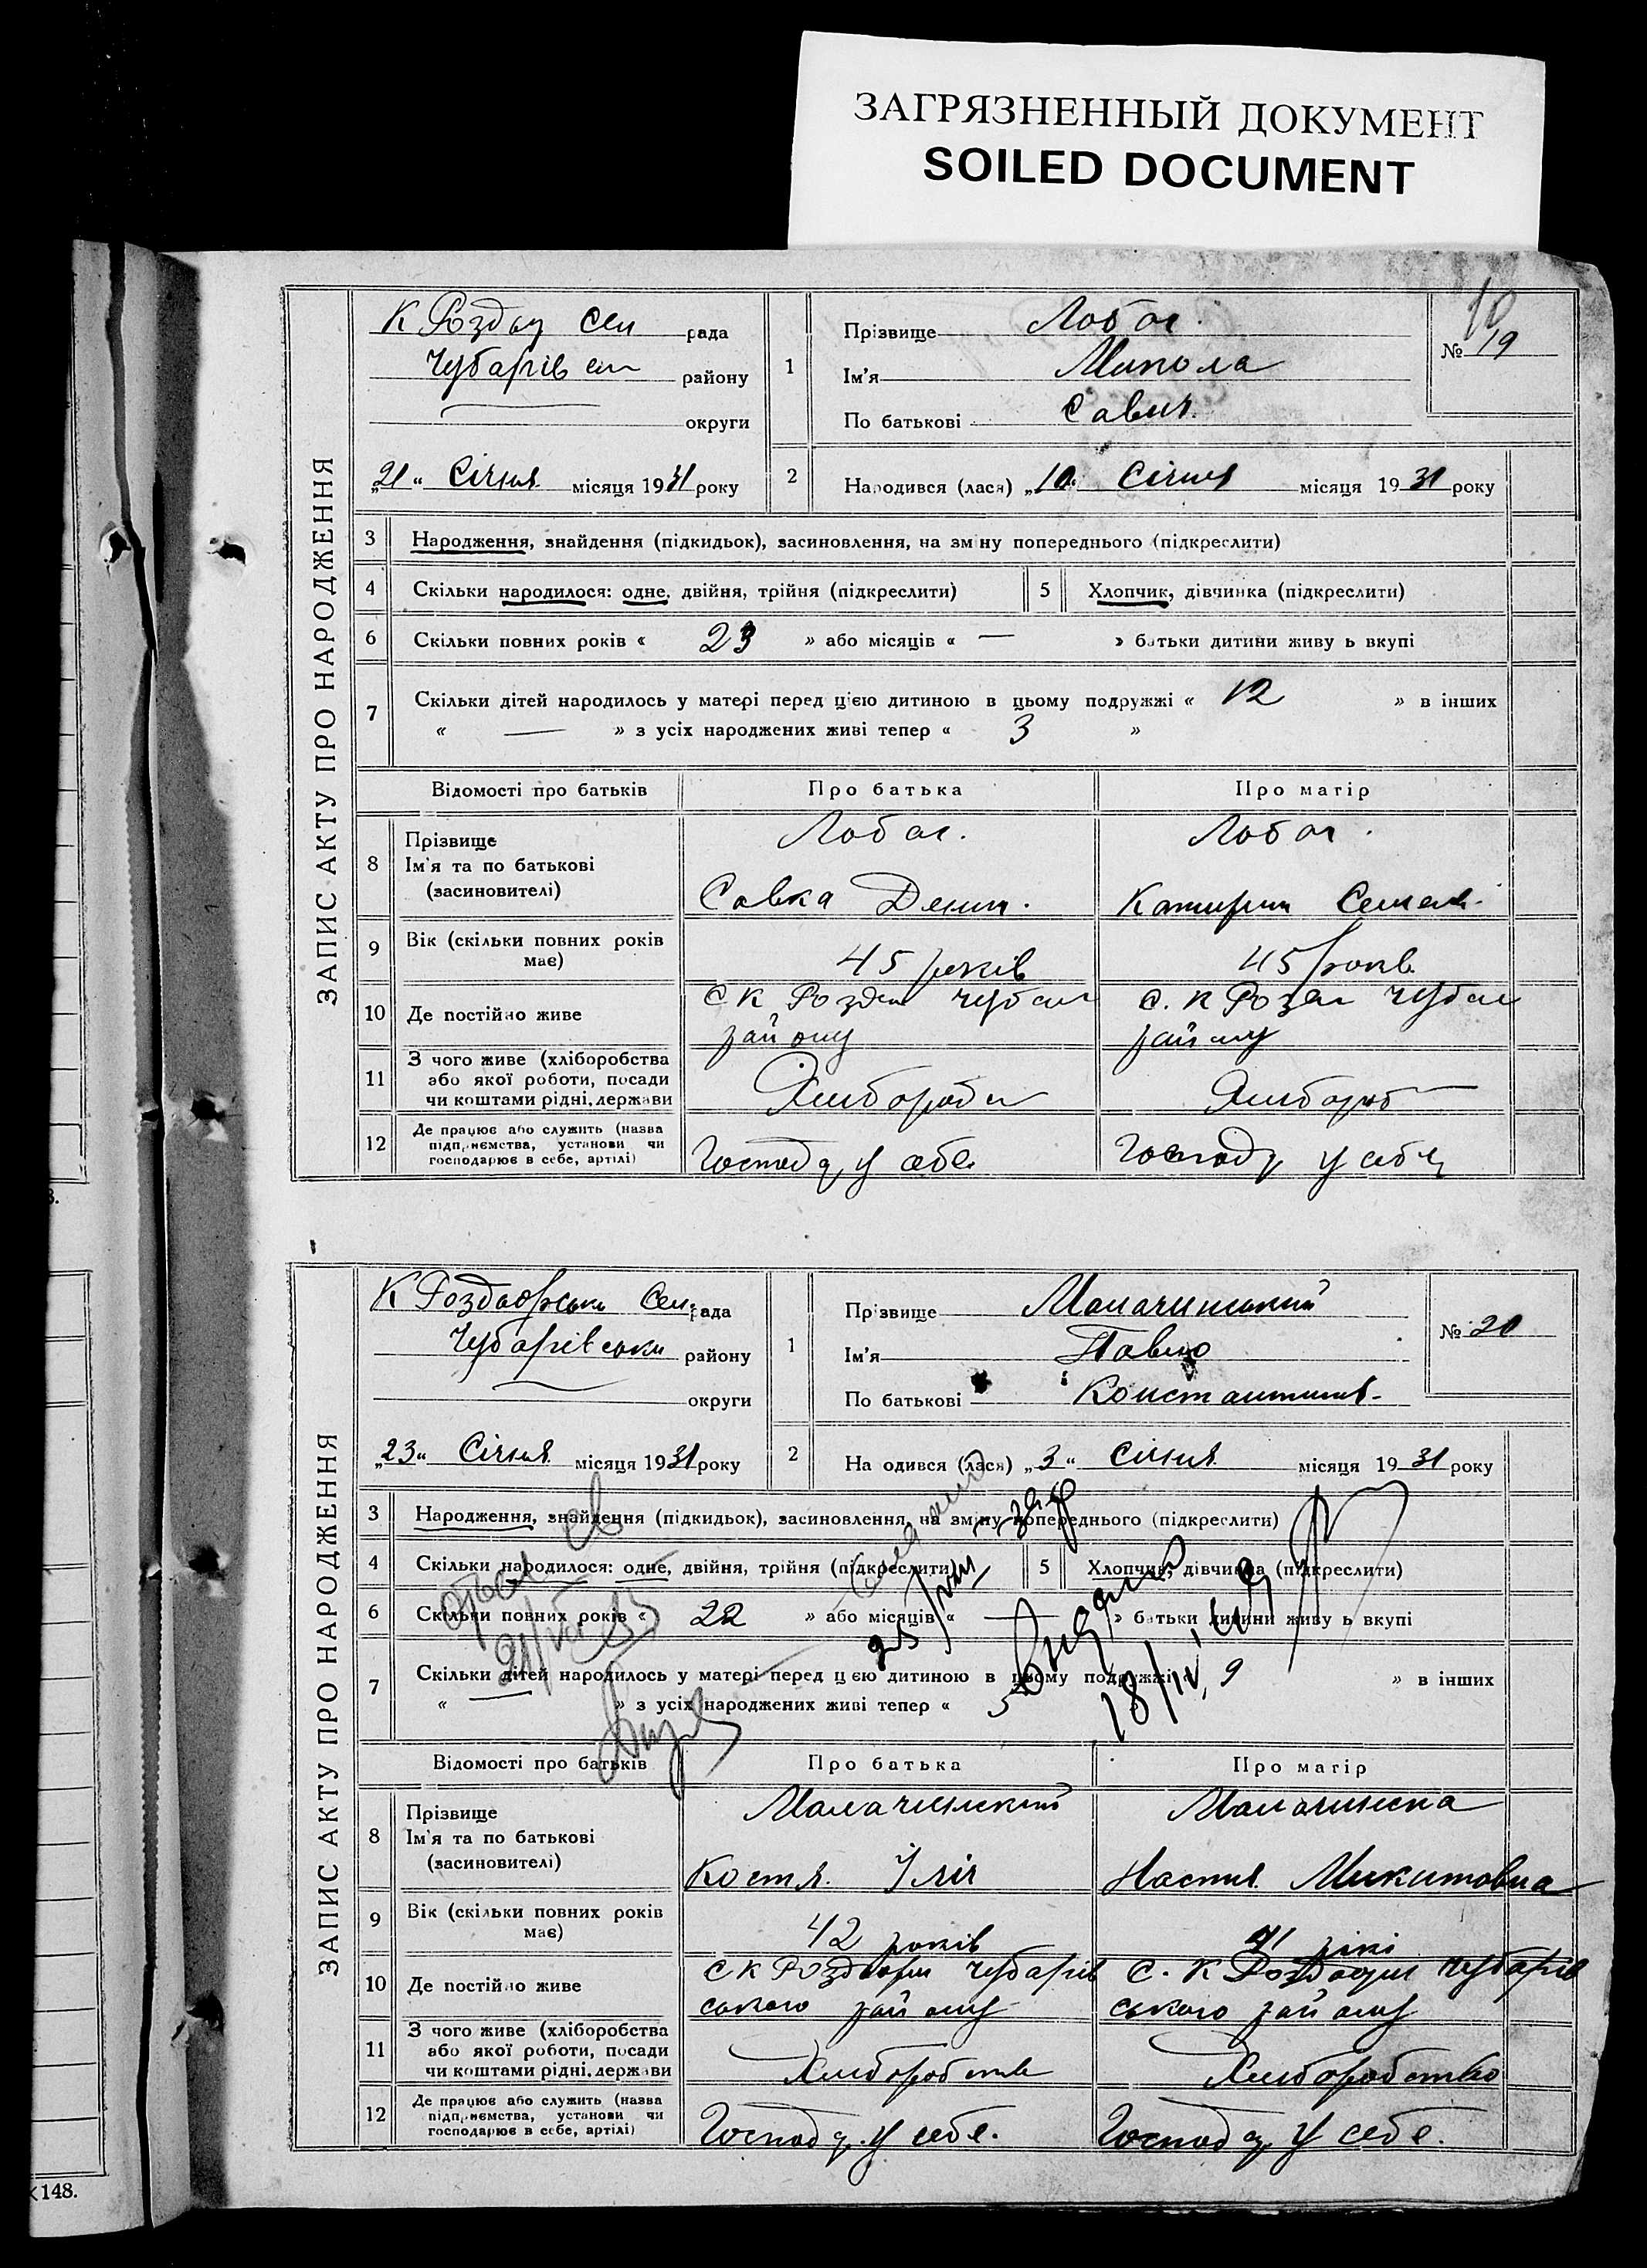 ЗАГРЯЗНЕННЫЙ ДОКУМЕНТ
SOILED DOCUMENT
10
ЗАПИС АКТУ ПРО НАРОДЖЕННЯ
К Розд сел рада
Чубарівсь району
округи
„21“ Січня місяця 1931 року
1
Прізвище Лобач
Ім'я Микола
По батькові Савич
№ 19
2
Народився (лася) „10“ Січня місяця 1931 року
3 Народження, знайдення (підкидьок), засиновлення, на зміну попереднього (підкреслити)
4 Скільки народилося: одне, двійня, трійня (підкреслити)
5 Хлопчик, дівчинка (підкреслити)
6 Скільки повних років « 23 » або місяців « — » батьки дитини живу ь вкупі
7 Скільки дітей народилось у матері перед цією дитиною в цьому подружжі « 12 » в інших
« — » з усіх народжених живі тепер « 3 »
Відомості про батьків Про батька Про матір
8 Прізвище
Ім'я та по батькові
(засиновителі)
Лобач.
Савка Денис.
Лобач.
Катирин Семен.
9 Вік (скільки повних років
має)
45 років
45 років
10 Де постійно живе
С К Розд Чубар
району
С. К Розд Чубар
району
11 З чого живе (хліборобства
або якої роботи, посади
чи коштами рідні, держави
Хлибороб
Хлибороб
12 Де працює або служить (назва
підприємства, установи чи
господарює в себе, артілі)
Господ у себе
Господ у себе
ЗАПИС АКТУ ПРО НАРОДЖЕННЯ
К Роздорськ Сел. рада
Чубарівськ району
округи
„23“ Січня місяця 1931 року
1
Прізвище Малачинський
Ім'я Павло
По батькові Константинов.
№ 20
2
На одився (лася) „3“ Січня місяця 1931 року
3 Народження, знайдення (підкидьок), засиновлення, на зміну попереднього (підкреслити)
4 Скільки народилося: одне, двійня, трійня (підкреслити)
5 Хлопчик, дівчинка (підкреслити)
6 Скільки повних років « 22 » або місяців « — » батьки дитини живу ь вкупі
7 Скільки дітей народилось у матері перед цією дитиною в цьому подружжі « 9 » в інших
« — » з усіх народжених живі тепер « 5
Відомості про батьків Про батька Про матір
8 Прізвище
Ім'я та по батькові
(засиновителі)
Малачинский
Костя. Іліч
Малачинска
Настя Микитовна
9 Вік (скільки повних років
має)
42 років
41 рікі
10 Де постійно живе
С К Роздори Чубарів
ського району
С. К Роздори Чубарів
ського району
11 З чого живе (хліборобства
або якої роботи, посади
чи коштами рідні, держави
Хлиборобств
Хлиборобство
12 Де працює або служить (назва
підприємства, установи чи
господарює в себе, артілі)
Господ. у себе.
Господ у себе.
148.